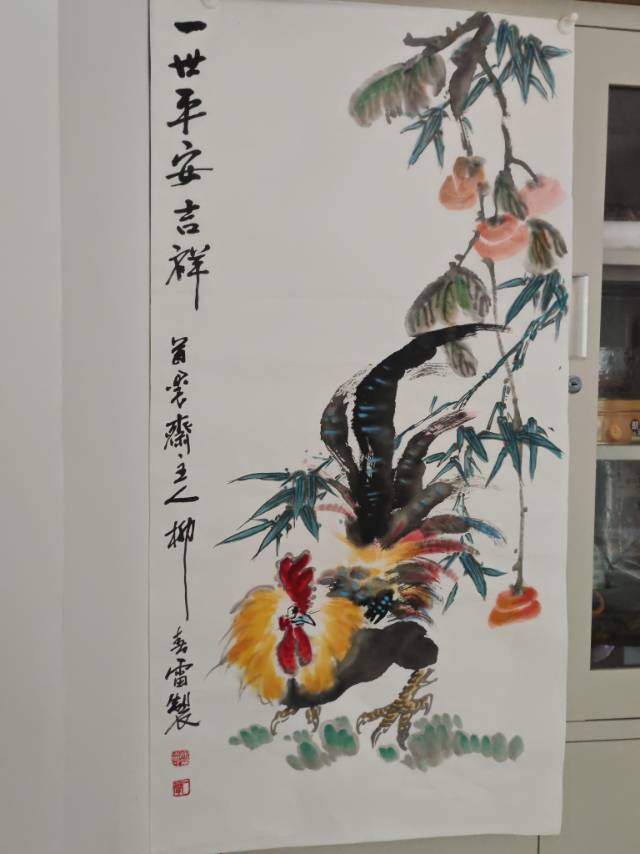 一世平安吉祥
首羿齋主人柳春雷製